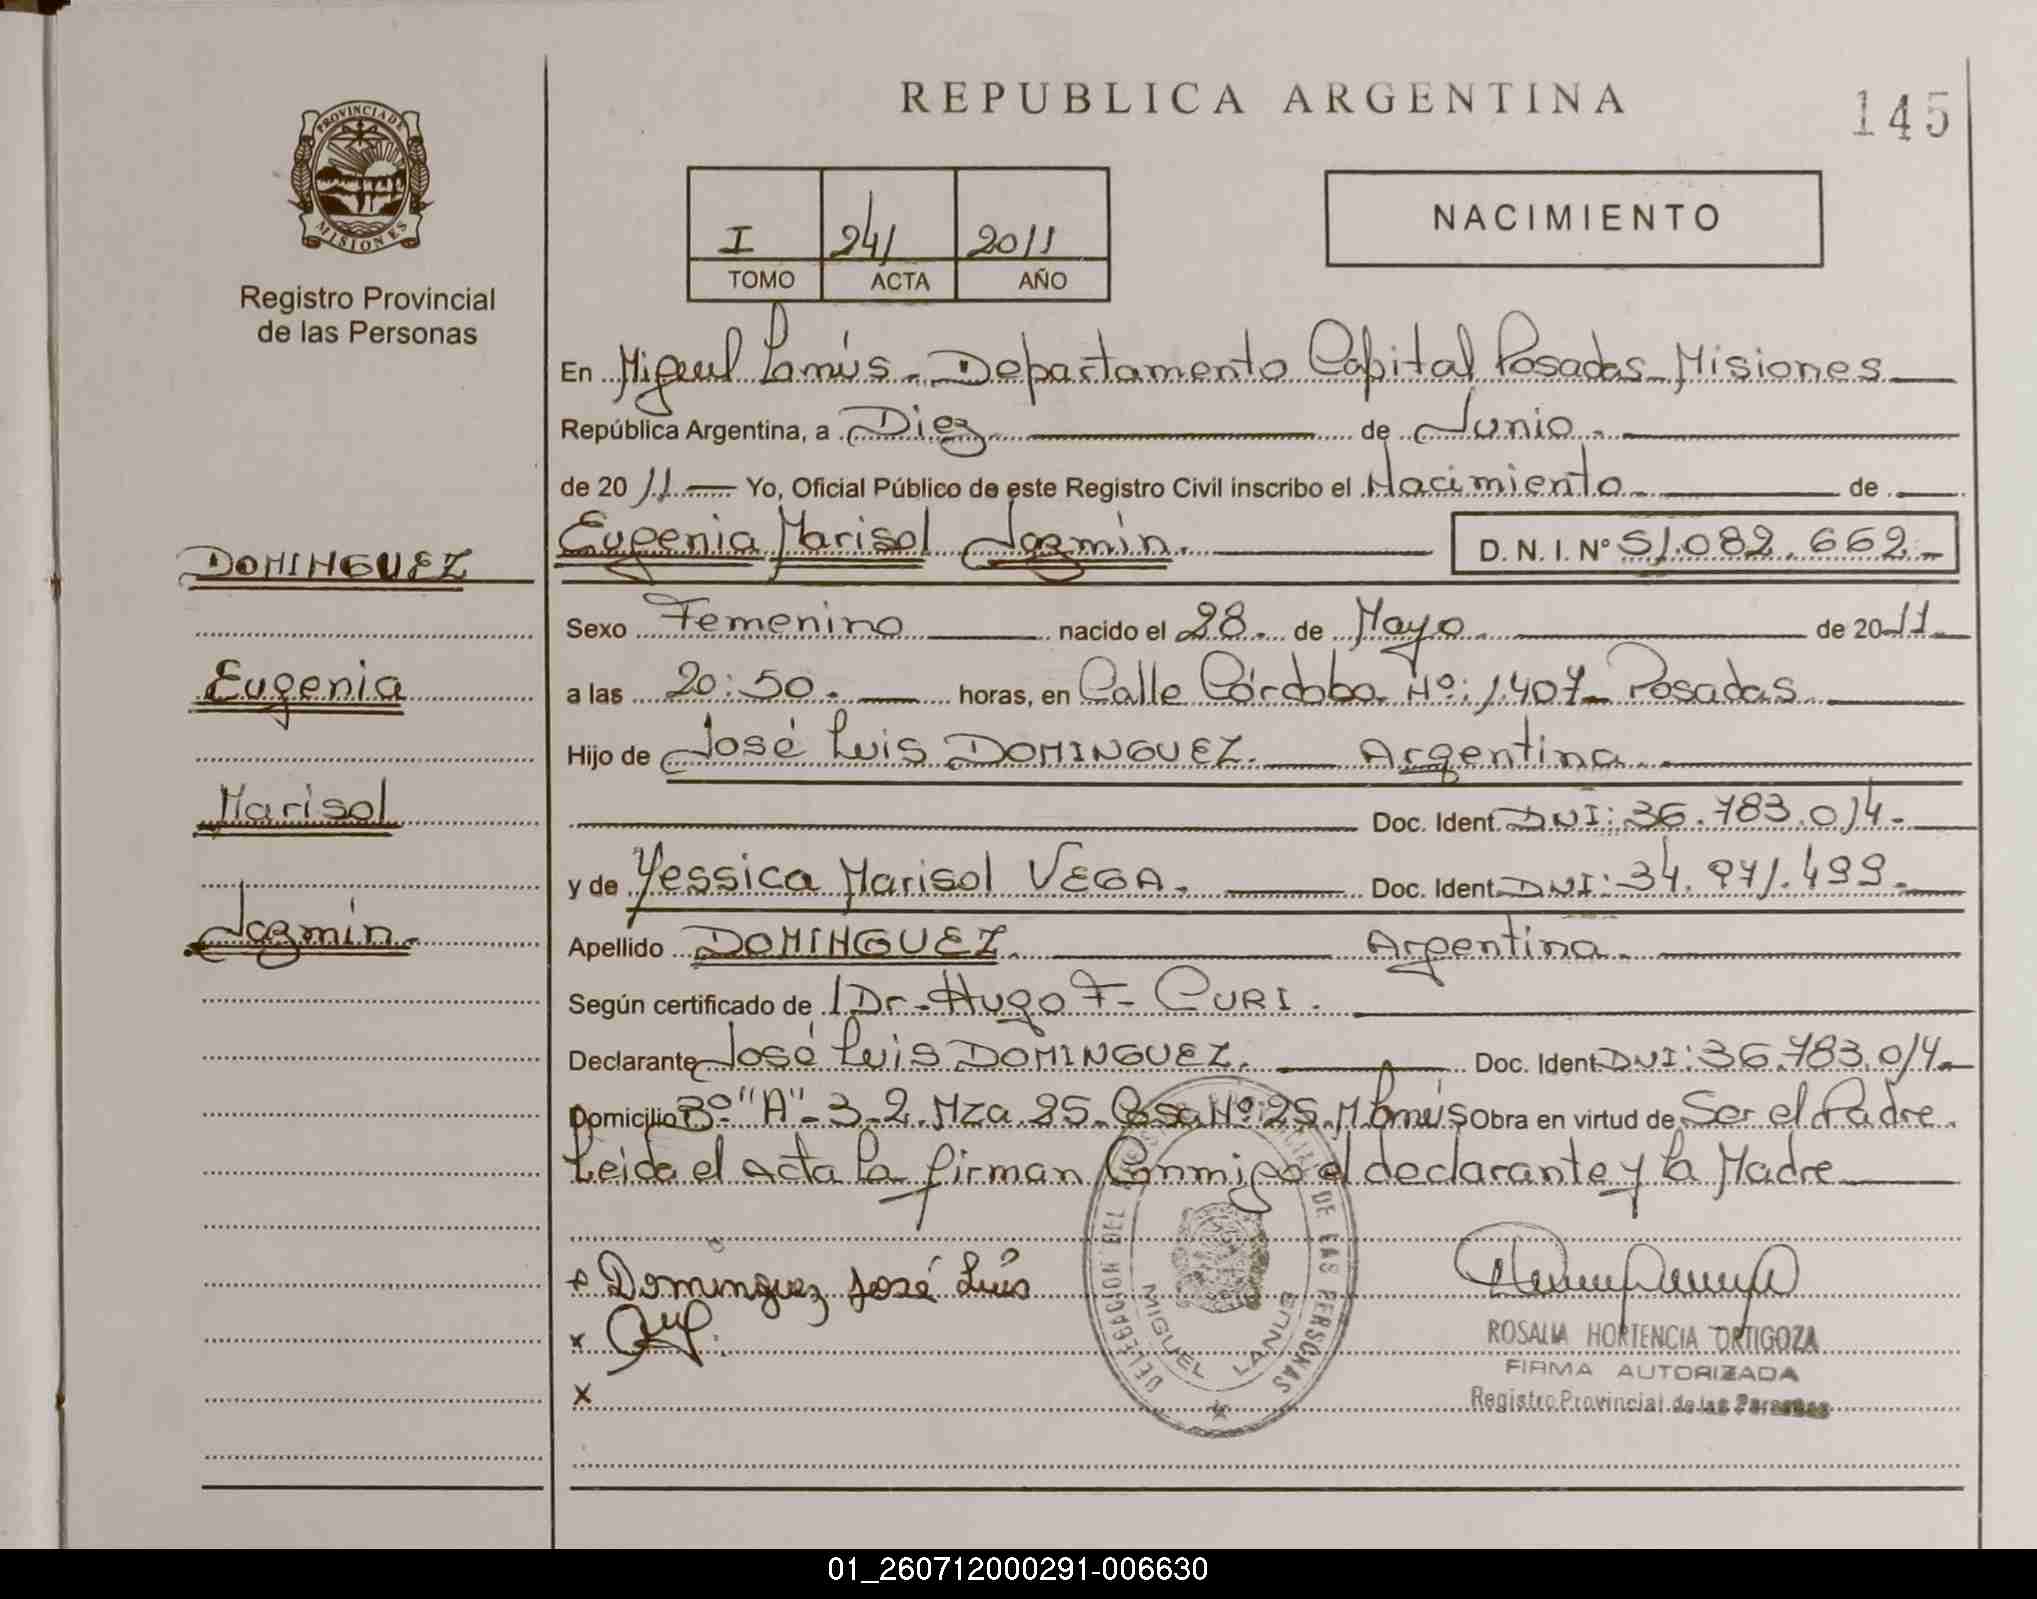 REPUBLICA ARGENTINA
145
PROVINCIA DE MISIONES
Registro Provincial
de las Personas
I 241 2011
TOMO ACTA AÑO
NACIMIENTO
En Miguel Lanús - Departamento Capital Posadas Misiones
República Argentina, a Diez de Junio
de 2011 Yo, Oficial Público de este Registro Civil inscribo el Nacimiento de
DOMINGUEZ
Eugenia
Marisol
Jazmín
Eugenia Marisol Jazmín. D. N. I. Nº 51.082.662
Sexo Femenino nacido el 28 de Mayo de 2011
a las 20:50 horas, en Calle Córdoba Nº: 1.407 Posadas
Hijo de José Luis DOMINGUEZ. Argentina
Doc. Ident. DNI: 36.783.014
y de Yessica Marisol VEGA. Doc. Ident. DNI: 34.971.499
Apellido DOMINGUEZ. Argentina
Según certificado de Dr. Hugo F. CURI.
Declarante José Luis DOMINGUEZ. Doc. Ident. DNI: 36.783.014
Domicilio "A" 3-2 Mza. 25 Casa Nº 25 M. Lanús Obra en virtud de Ser el Padre.
Leida el acta la firman Conmigo el declarante y la Madre
Dominguez José Luis
x
x
DELEGACION DEL DE LAS PERSONAS
MIGUEL LANUS
ROSALIA HORTENCIA ORTIGOZA
FIRMA AUTORIZADA
Registro Provincial de las Personas
01_260712000291-006630